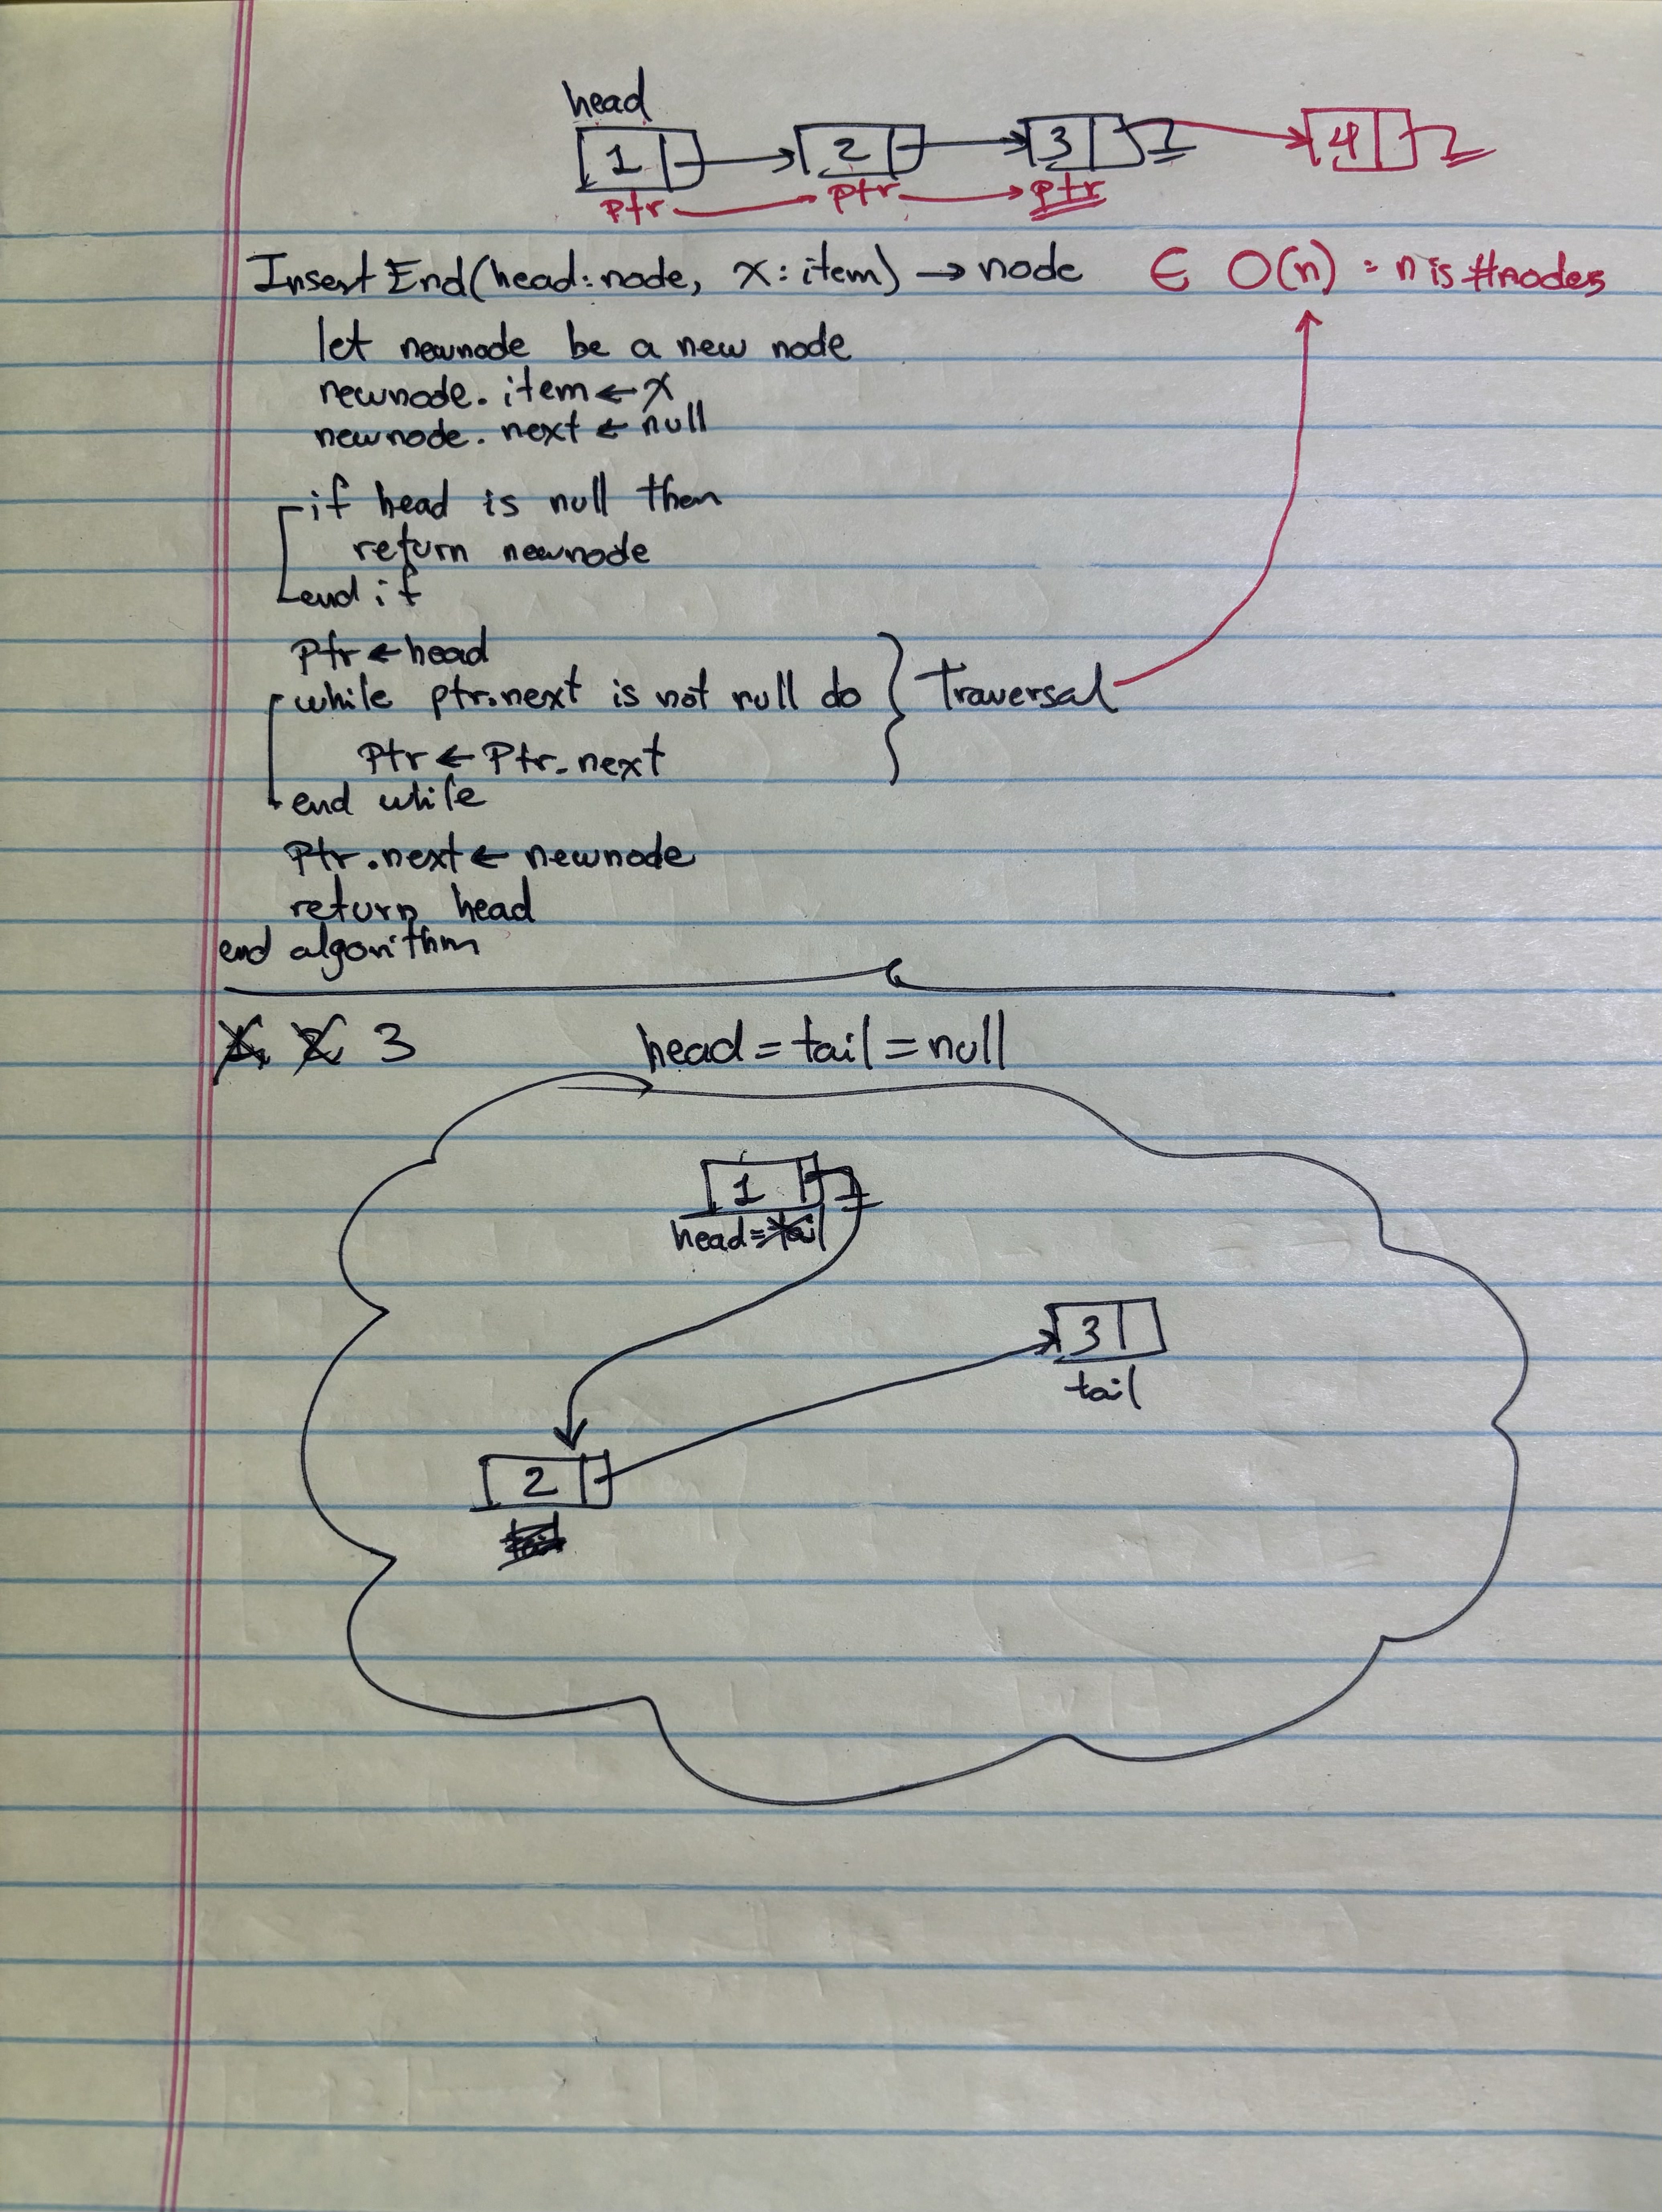 head
1 2 3 4
ptr ptr ptr
Insert End(head:node, x:item) → node ∈ O(n) : n is #nodes
let newnode be a new node
newnode.item ← x
newnode.next ← null
if head is null then
return newnode
end if
ptr ← head
while ptr.next is not null do } Traversal
ptr ← ptr.next
end while
ptr.next ← newnode
return head
end algorithm
1 2 3 head = tail = null
1
head = tail
3
tail
2
tail